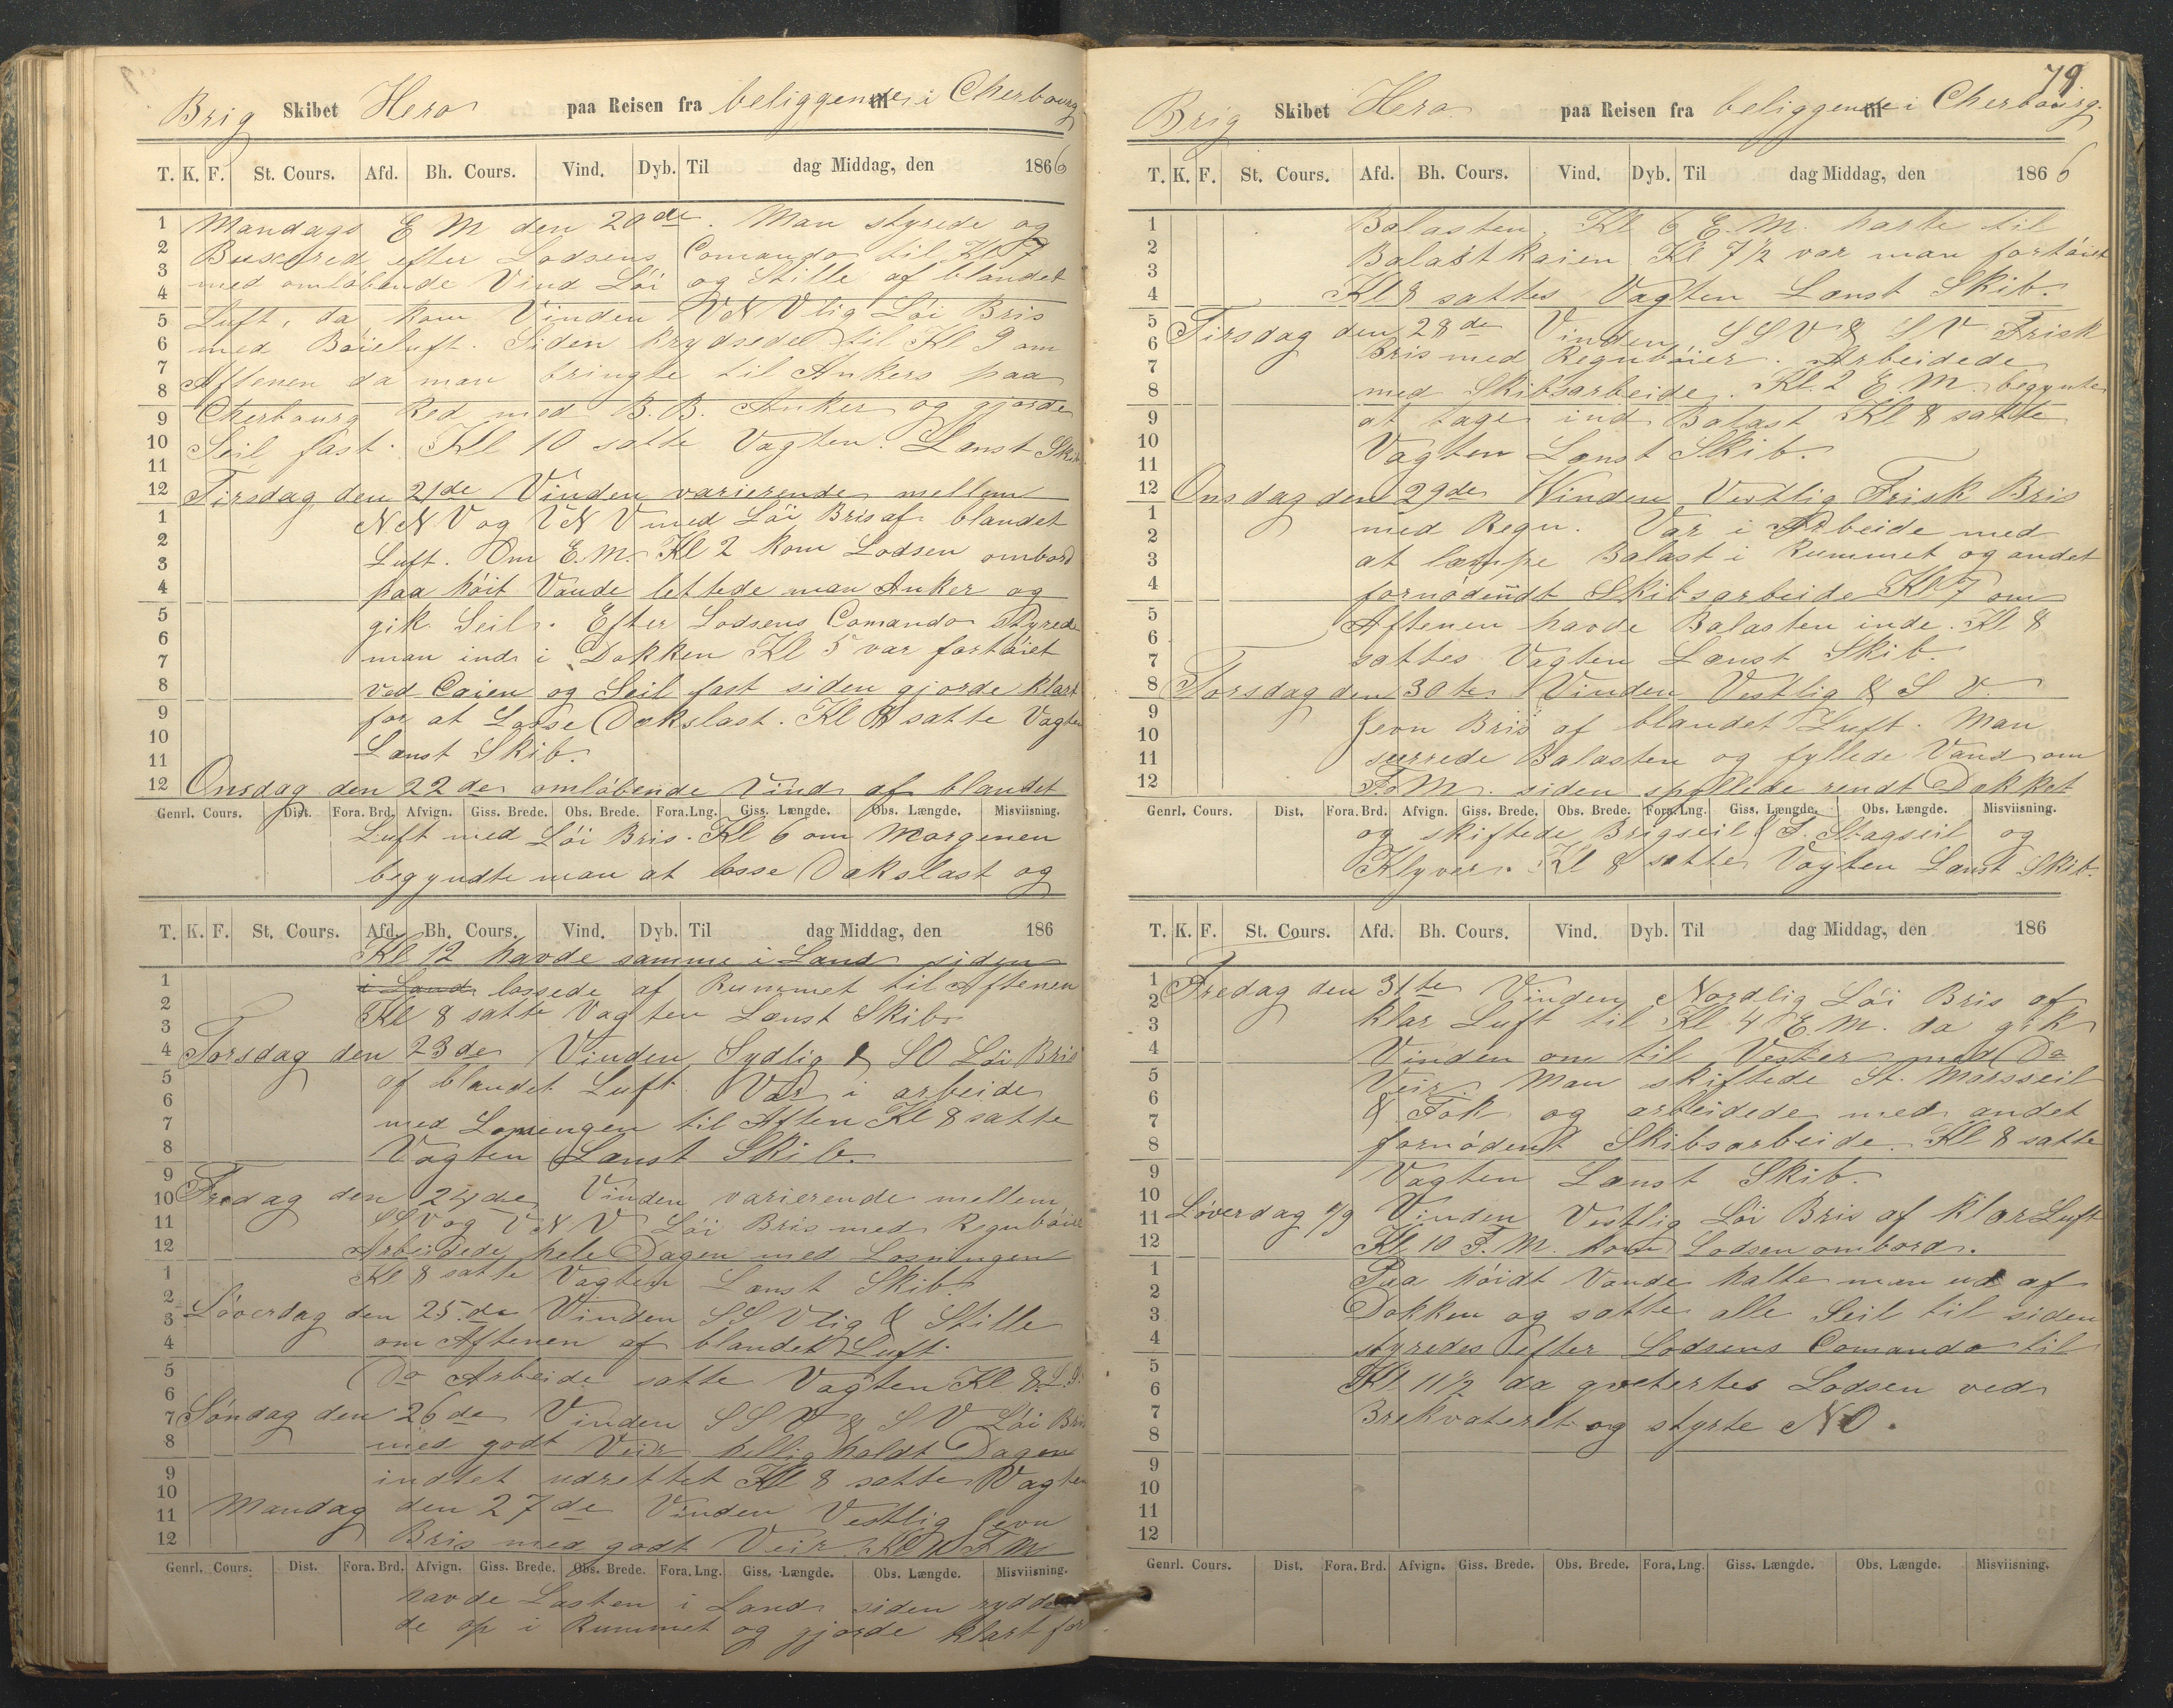 Brig Skibet Hero paa Reisen fra beliggende til i Cherbourg
T. K. F. St. Cours. Afd. Bh. Cours. Vind. Dyb. Til dag Middag, den 1866
1 Mandags E M den 20de. Man styrede og
2 Buxerede efter Lodsens Comando til Kl 7
3 med omløbende Vind Løi og Stille af blandet
4
5 Luft, da kom Vinden VNVlig Løi Bris
6 med Böieluft. Siden krydsede til Kl 9 om
7 Aftenen da man bringte til Ankers paa
8
9 Cherbourg Red med B.B. Anker og gjorde
10 Seil fast. Kl 10 satte Vagten. Lænst Skib
11
12 Tirsdag den 21de Vinden varierende mellem
1 NNV og VNV med Løi Bris af blandet
2 Luft. Om E.M. Kl 2 kom Lodsen ombord
3
4 paa höit Vande lettede man Anker og
5 gik Seil. Efter Lodsens Comando Styrede
6 man ind i Dokken Kl 5 var fortöiet
7
8 ved Caien og Seil fast siden gjorde klart
9 for at Losse Dækslast. Kl 8 satte Vagten
10 Lænst Skib.
11
12 Onsdag den 22de omløbende Vind af blandet
Genrl. Cours. Dist. Fora. Brd. Afvign. Giss. Brede. Obs. Brede. Fora. Lng. Giss. Længde. Obs. Længde. Misviisning.
Luft med Löi Bris. Kl 6 om Morgenen
begyndte man at losse Dækslast og
T. K. F. St. Cours. Afd. Bh. Cours. Vind. Dyb. Til dag Middag, den 186
Kl 12 havde samme i Land siden
1 i Land lossede af Rummet til Aftenen
2 Kl 8 satte Vagten Lænst Skib.
3
4 Torsdag den 23de Vinden Sydlig & SO Löi Bris
5 af blandet Luft. Var i arbeide
6
7 med Losningen til Aften Kl 8 satte
8 Vagten Lænst Skib.
9
10 Fredag den 24de Vinden varierende mellem
11 SSV og VNV Löi Bris med Regnböier
12 Arbeidede hele Dagen med Losningen
1 Kl 8 satte Vagten Lænst Skib.
2
3 Löverdag den 25.de Vinden SSVlig & Stille
4 om Aftenen af blandet Luft.
5 Do Arbeide satte Vagten Kl 8. L.S.
6
7 Söndag den 26de Vinden SSV & SV Löi Bris
8 med godt Veir helligholdt Dagen
9 indtet udrettet Kl 8 satte Vagten
10
11 Mandag den 27de Vinden Vestlig Jevn
12 Bris med godt Veir. Kl 10 F M
Genrl. Cours. Dist. Fora. Brd. Afvign. Giss. Brede. Obs. Brede. Fora. Lng. Giss. Længde. Obs. Længde. Misviisning.
havde Lasten i Land siden rydde
de op i Rummet og gjorde klart for
79
Brig Skibet Hero paa Reisen fra beliggende til i Cherbourg.
T. K. F. St. Cours. Afd. Bh. Cours. Vind. Dyb. Til dag Middag, den 1866
1 Balasten. Kl 6 E.M. harte til
2 Balastkaien Kl 7 1/2 var man fortöiet
3
4 Kl 8 sattes Vagten Lænst Skib.
5 Tirsdag den 28de Vinden SSV & SV Frisk
6 Bris med Regnböier. Arbeidede
7
8 med Skibsarbeide. Kl. 2 E.M. begynte
9 at tage ind Balast Kl 8 satte
10 Vagten Lænst Skib.
11
12 Onsdag den 29de Winden Vestlig Frisk Bris
1 med Regn. Var i Arbeide med
2
3 at læmpe Balast i Rummet og andet
4 fornödendt Skibsarbeide Kl 7 om
5 Aftenen havde Balasten inde. Kl 8
6
7 sattes Vagten Lænst Skib.
8 Torsdag den 30te Vinden Vestlig & S V.
9
10 Jevn Bris af blandet Luft. Man
11 surrede Balasten og fyllede Vand om
12 F.M. siden spyllede rendt Dækket
Genrl. Cours. Dist. Fora. Brd. Afvign. Giss. Brede. Obs. Brede. Fora. Lng. Giss. Længde. Obs. Længde. Misviisning.
og skiftede Brigseil & S. Stagseil og
Klyver. Kl 8 satte Vagten Lænst Skib.
T. K. F. St. Cours. Afd. Bh. Cours. Vind. Dyb. Til dag Middag, den 186
1 Fredag den 31te Vinden Nordlig Löi Bris af
2
3 klar Luft til Kl 4 E.M. da gik
4 Vinden om til Vester med Do
5 Veir. Man skiftede St. Mærsseil
6
7 & Fok og arbeidede med andet
8 fornödent Skibsarbeide. Kl 8 satte
9 Vagten Lænst Skib.
10
11 Löverdag 1/9 Vinden Vestlig Löi Bris af klar Luft
12 Kl 10 F.M. kom Lodsen ombord.
1 Paa höidt Vande halte man ud af
2
3 Dokken og satte alle Seil til siden
4 styredes efter Lodsens Comando til
5
6 Kl 11 1/2 da qvitertes Lodsen ved
7 Brekvateret og styrte NO.
8
9
10
11
12
Genrl. Cours. Dist. Fora. Brd. Afvign. Giss. Brede. Obs. Brede. Fora. Lng. Giss. Længde. Obs. Længde. Misviisning.